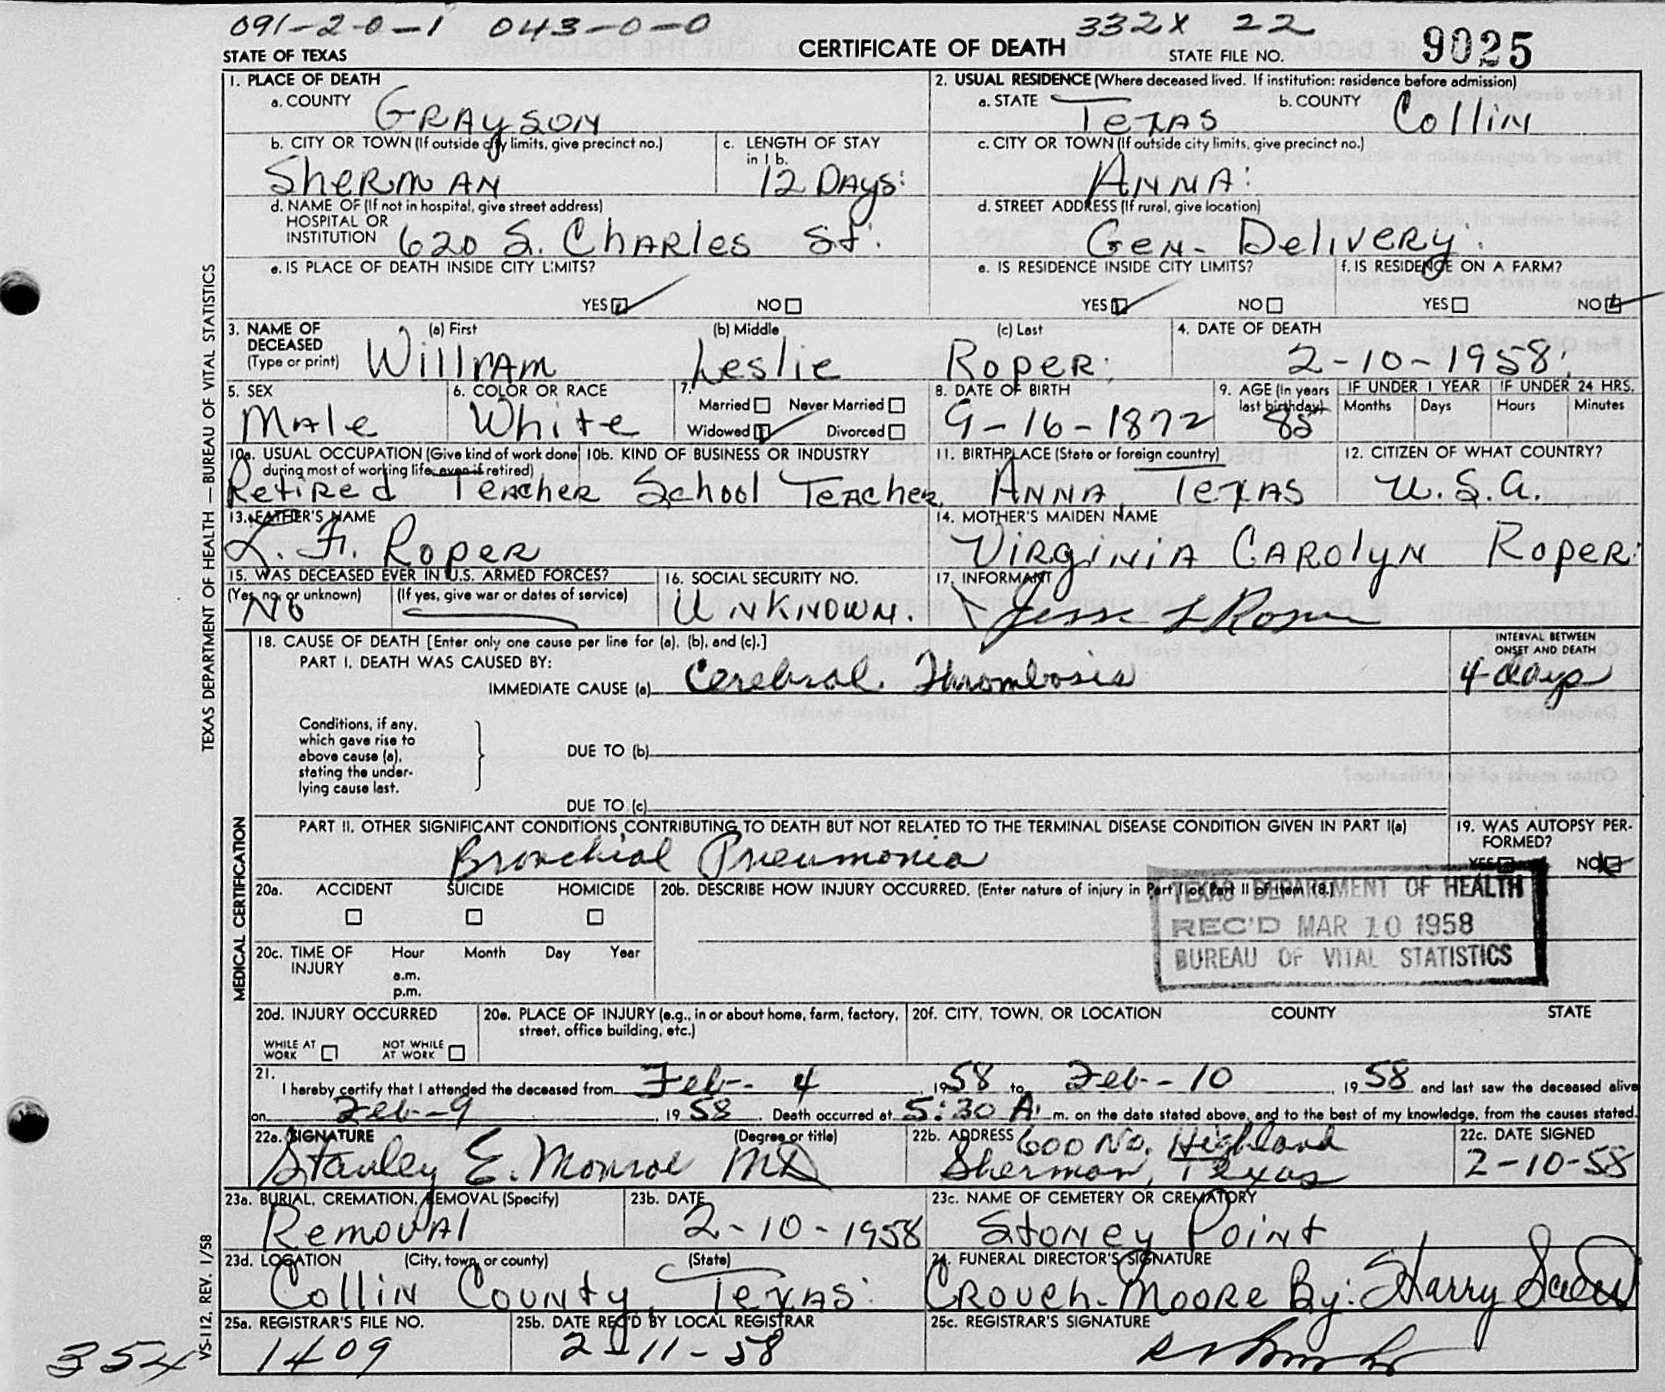 091-2-0-1 043-0-0 332X 22
STATE OF TEXAS CERTIFICATE OF DEATH STATE FILE NO. 9025
1. PLACE OF DEATH
a. COUNTY GRAYSON
2. USUAL RESIDENCE (Where deceased lived. If institution: residence before admission)
a. STATE TEXAS b. COUNTY Collin
b. CITY OR TOWN (If outside city limits, give precinct no.) SHERMAN
c. LENGTH OF STAY in 1 b. 12 DAYS:
c. CITY OR TOWN (If outside city limits, give precinct no.) ANNA:
d. NAME OF (If not in hospital, give street address)
HOSPITAL OR
INSTITUTION 620 S. CHARLES St.
d. STREET ADDRESS (If rural, give location) GEN- DELIVERY.
e. IS PLACE OF DEATH INSIDE CITY LIMITS?
YES NO
e. IS RESIDENCE INSIDE CITY LIMITS?
YES NO
f. IS RESIDENCE ON A FARM?
YES NO
3. NAME OF
DECEASED
(Type or print)
(a) First William (b) Middle Leslie (c) Last Roper
4. DATE OF DEATH 2-10-1958
5. SEX Male
6. COLOR OR RACE White
7. Married Never Married
Widowed Divorced
8. DATE OF BIRTH 9-16-1872
9. AGE (In years
last birthday) 85
IF UNDER 1 YEAR IF UNDER 24 HRS.
Months Days Hours Minutes
10a. USUAL OCCUPATION (Give kind of work done
during most of working life, even if retired)
Retired Teacher
10b. KIND OF BUSINESS OR INDUSTRY
School Teacher
11. BIRTHPLACE (State or foreign country)
ANNA, TEXAS
12. CITIZEN OF WHAT COUNTRY?
U.S.A.
13. FATHER'S NAME
L. F. Roper
14. MOTHER'S MAIDEN NAME
Virginia Carolyn Roper
15. WAS DECEASED EVER IN U.S. ARMED FORCES?
(Yes, no, or unknown) (If yes, give war or dates of service)
No
16. SOCIAL SECURITY NO.
UNKNOWN.
17. INFORMANT
Jesse L Roper
TEXAS DEPARTMENT OF HEALTH — BUREAU OF VITAL STATISTICS
MEDICAL CERTIFICATION
18. CAUSE OF DEATH [Enter only one cause per line for (a), (b), and (c).]
PART I. DEATH WAS CAUSED BY:
IMMEDIATE CAUSE (a) Cerebral Thrombosis
INTERVAL BETWEEN
ONSET AND DEATH
4 days
Conditions, if any,
which gave rise to
above cause (a),
stating the under-
lying cause last.
DUE TO (b)
DUE TO (c)
PART II. OTHER SIGNIFICANT CONDITIONS CONTRIBUTING TO DEATH BUT NOT RELATED TO THE TERMINAL DISEASE CONDITION GIVEN IN PART I(a)
Bronchial Pneumonia
19. WAS AUTOPSY PER-
FORMED?
YES NO
20a. ACCIDENT SUICIDE HOMICIDE
20b. DESCRIBE HOW INJURY OCCURRED. (Enter nature of injury in Part I or Part II of item 18.)
TEXAS DEPARTMENT OF HEALTH
REC'D MAR 10 1958
BUREAU OF VITAL STATISTICS
20c. TIME OF
INJURY
Hour Month Day Year
a.m.
p.m.
20d. INJURY OCCURRED
WHILE AT
WORK
NOT WHILE
AT WORK
20e. PLACE OF INJURY (e.g., in or about home, farm, factory,
street, office building, etc.)
20f. CITY, TOWN, OR LOCATION COUNTY STATE
21.
I hereby certify that I attended the deceased from Feb- 4, 1958 to Feb-10, 1958 and last saw the deceased alive
on Feb-9, 1958. Death occurred at 5:30 A. m. on the date stated above, and to the best of my knowledge, from the causes stated.
22a. SIGNATURE (Degree or title)
Stanley E. Monroe MD
22b. ADDRESS 600 No. Highland
Sherman, Texas
22c. DATE SIGNED
2-10-58
23a. BURIAL, CREMATION, REMOVAL (Specify)
Removal
23b. DATE
2-10-1958
23c. NAME OF CEMETERY OR CREMATORY
Stoney Point
23d. LOCATION (City, town, or county) (State)
Collin County, Texas.
24. FUNERAL DIRECTOR'S SIGNATURE
Crouch-Moore By: Harry
25a. REGISTRAR'S FILE NO.
1409
25b. DATE REC'D BY LOCAL REGISTRAR
2-11-58
25c. REGISTRAR'S SIGNATURE
VS-112, REV. 1/58
354